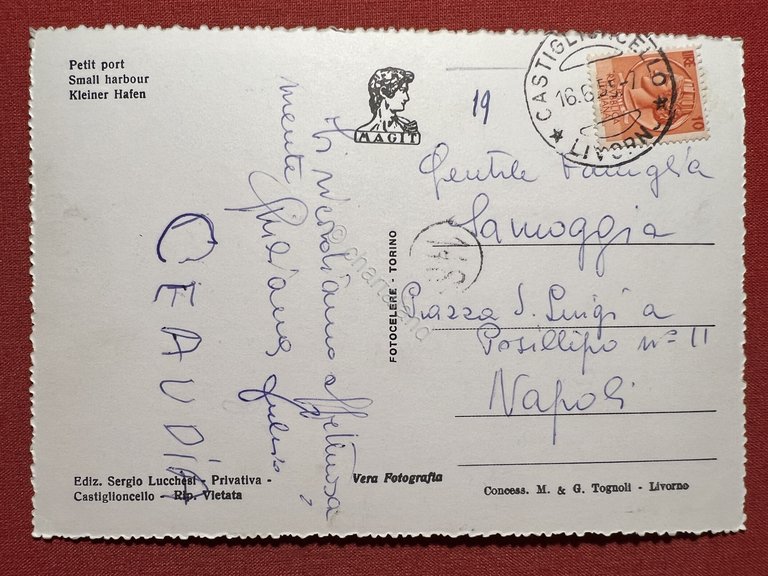 Petit port
Small harbour
Kleiner Hafen
MAGIT
19
CASTIGLIONCELLO
16.6.55-7
10
Gentile Famiglia
Samoggia
Piazza S. Luigi a
Posillipo nº 11
Napoli
Vi ricordiamo affettuosa
mente
Giuliana
CEAUDIA
FOTOCELERE - TORINO
Ediz. Sergio Lucchesi - Privativa -
Castiglioncello - Rip. Vietata
Vera Fotografia
Concess. M. & G. Tognoli - Livorno